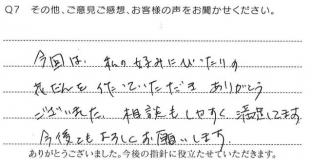 Q7 その他、ご意見ご感想、お客様の声をお聞かせください。
今回は、私の好みにぴったりの
花だんを作っていただき ありがとう
ございました。相談もしやすく 満足してます
今後ともよろしくお願いします。
ありがとうございました。今後の指針に役立たせていただきます。